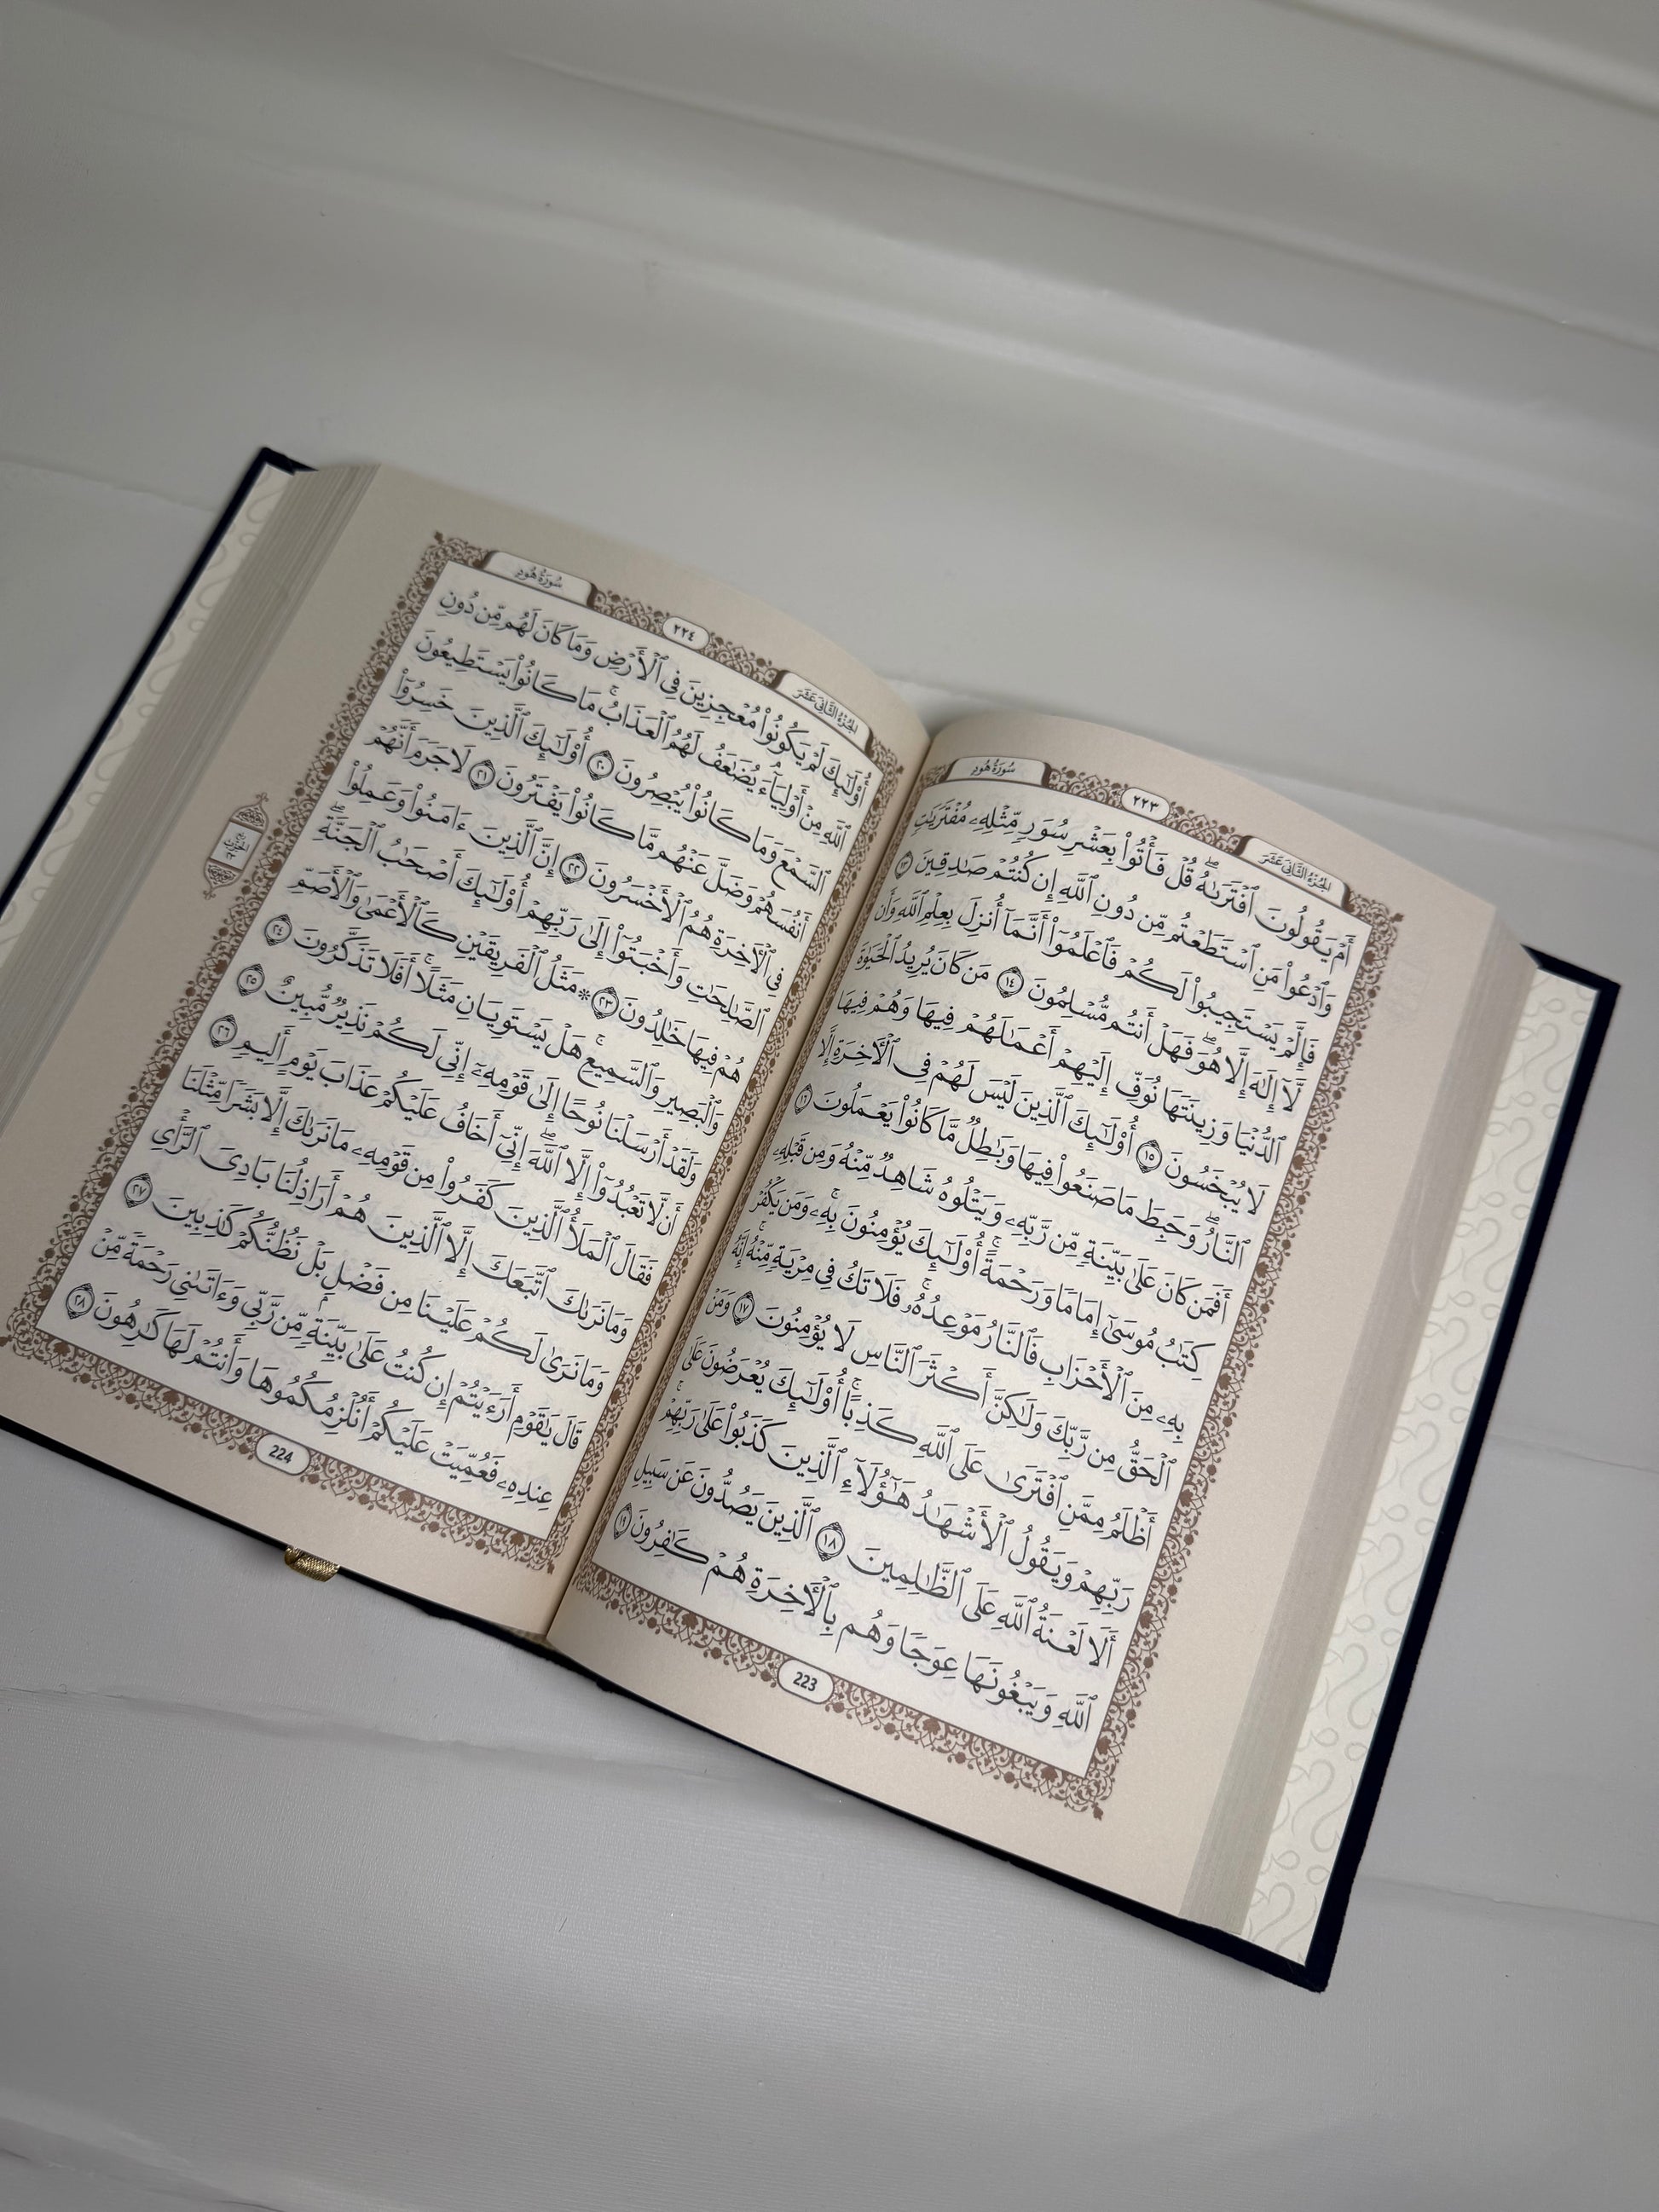 الجزء الثاني عشر
٢٢٣
سورة هود
أَمْ يَقُولُونَ ٱفْتَرَىٰهُۖ قُلْ فَأْتُوا۟ بِعَشْرِ سُوَرٍ مِّثْلِهِۦ مُفْتَرَيَٰتٍ
وَٱدْعُوا۟ مَنِ ٱسْتَطَعْتُم مِّن دُونِ ٱللَّهِ إِن كُنتُمْ صَٰدِقِينَ ١٣
فَإِلَّمْ يَسْتَجِيبُوا۟ لَكُمْ فَٱعْلَمُوٓا۟ أَنَّمَآ أُنزِلَ بِعِلْمِ ٱللَّهِ وَأَن
لَّآ إِلَٰهَ إِلَّا هُوَۖ فَهَلْ أَنتُم مُّسْلِمُونَ ١٤ مَن كَانَ يُرِيدُ ٱلْحَيَوٰةَ
ٱلدُّنْيَا وَزِينَتَهَا نُوَفِّ إِلَيْهِمْ أَعْمَٰلَهُمْ فِيهَا وَهُمْ فِيهَا
لَا يُبْخَسُونَ ١٥ أُو۟لَٰٓئِكَ ٱلَّذِينَ لَيْسَ لَهُمْ فِى ٱلْءَاخِرَةِ إِلَّا
ٱلنَّارُۖ وَحَبِطَ مَا صَنَعُوا۟ فِيهَا وَبَٰطِلٌ مَّا كَانُوا۟ يَعْمَلُونَ ١٦
أَفَمَن كَانَ عَلَىٰ بَيِّنَةٍ مِّن رَّبِّهِۦ وَيَتْلُوهُ شَاهِدٌ مِّنْهُ وَمِن قَبْلِهِۦ
كِتَٰبُ مُوسَىٰٓ إِمَامًا وَرَحْمَةًۚ أُو۟لَٰٓئِكَ يُؤْمِنُونَ بِهِۦۚ وَمَن يَكْفُرْ
بِهِۦ مِنَ ٱلْأَحْزَابِ فَٱلنَّارُ مَوْعِدُهُۥۚ فَلَا تَكُ فِى مِرْيَةٍ مِّنْهُۚ إِنَّهُ
ٱلْحَقُّ مِن رَّبِّكَ وَلَٰكِنَّ أَكْثَرَ ٱلنَّاسِ لَا يُؤْمِنُونَ ١٧ وَمَنْ
أَظْلَمُ مِمَّنِ ٱفْتَرَىٰ عَلَى ٱللَّهِ كَذِبًاۚ أُو۟لَٰٓئِكَ يُعْرَضُونَ عَلَىٰ
رَبِّهِمْ وَيَقُولُ ٱلْأَشْهَٰدُ هَٰٓؤُلَآءِ ٱلَّذِينَ كَذَبُوا۟ عَلَىٰ رَبِّهِمْۚ
أَلَا لَعْنَةُ ٱللَّهِ عَلَى ٱلظَّٰلِمِينَ ١٨ ٱلَّذِينَ يَصُدُّونَ عَن سَبِيلِ
ٱللَّهِ وَيَبْغُونَهَا عِوَجًا وَهُم بِٱلْءَاخِرَةِ هُمْ كَٰفِرُونَ ١٩
223
الجزء الثاني عشر
٢٢٤
سورة هود
أُو۟لَٰٓئِكَ لَمْ يَكُونُوا۟ مُعْجِزِينَ فِى ٱلْأَرْضِ وَمَا كَانَ لَهُم مِّن دُونِ
ٱللَّهِ مِنْ أَوْلِيَآءَۘ يُضَٰعَفُ لَهُمُ ٱلْعَذَابُۚ مَا كَانُوا۟ يَسْتَطِيعُونَ
ٱلسَّمْعَ وَمَا كَانُوا۟ يُبْصِرُونَ ٢٠ أُو۟لَٰٓئِكَ ٱلَّذِينَ خَسِرُوٓا۟
أَنفُسَهُمْ وَضَلَّ عَنْهُم مَّا كَانُوا۟ يَفْتَرُونَ ٢١ لَا جَرَمَ أَنَّهُمْ
فِى ٱلْءَاخِرَةِ هُمُ ٱلْأَخْسَرُونَ ٢٢ إِنَّ ٱلَّذِينَ ءَامَنُوا۟ وَعَمِلُوا۟
ٱلصَّٰلِحَٰتِ وَأَخْبَتُوٓا۟ إِلَىٰ رَبِّهِمْ أُو۟لَٰٓئِكَ أَصْحَٰبُ ٱلْجَنَّةِۖ
هُمْ فِيهَا خَٰلِدُونَ ٢٣ ۞ مَثَلُ ٱلْفَرِيقَيْنِ كَٱلْأَعْمَىٰ وَٱلْأَصَمِّ
وَٱلْبَصِيرِ وَٱلسَّمِيعِۚ هَلْ يَسْتَوِيَانِ مَثَلًاۚ أَفَلَا تَذَكَّرُونَ ٢٤
وَلَقَدْ أَرْسَلْنَا نُوحًا إِلَىٰ قَوْمِهِۦٓ إِنِّى لَكُمْ نَذِيرٌ مُّبِينٌ ٢٥
أَن لَّا تَعْبُدُوٓا۟ إِلَّا ٱللَّهَۖ إِنِّىٓ أَخَافُ عَلَيْكُمْ عَذَابَ يَوْمٍ أَلِيمٍ ٢٦
فَقَالَ ٱلْمَلَأُ ٱلَّذِينَ كَفَرُوا۟ مِن قَوْمِهِۦ مَا نَرَىٰكَ إِلَّا بَشَرًا مِّثْلَنَا
وَمَا نَرَىٰكَ ٱتَّبَعَكَ إِلَّا ٱلَّذِينَ هُمْ أَرَاذِلُنَا بَادِىَ ٱلرَّأْىِ
وَمَا نَرَىٰ لَكُمْ عَلَيْنَا مِن فَضْلٍۭ بَلْ نَظُنُّكُمْ كَٰذِبِينَ ٢٧
قَالَ يَٰقَوْمِ أَرَءَيْتُمْ إِن كُنتُ عَلَىٰ بَيِّنَةٍ مِّن رَّبِّى وَءَاتَىٰنِى رَحْمَةً مِّنْ
عِندِهِۦ فَعُمِّيَتْ عَلَيْكُمْ أَنُلْزِمُكُمُوهَا وَأَنتُمْ لَهَا كَٰرِهُونَ ٢٨
224